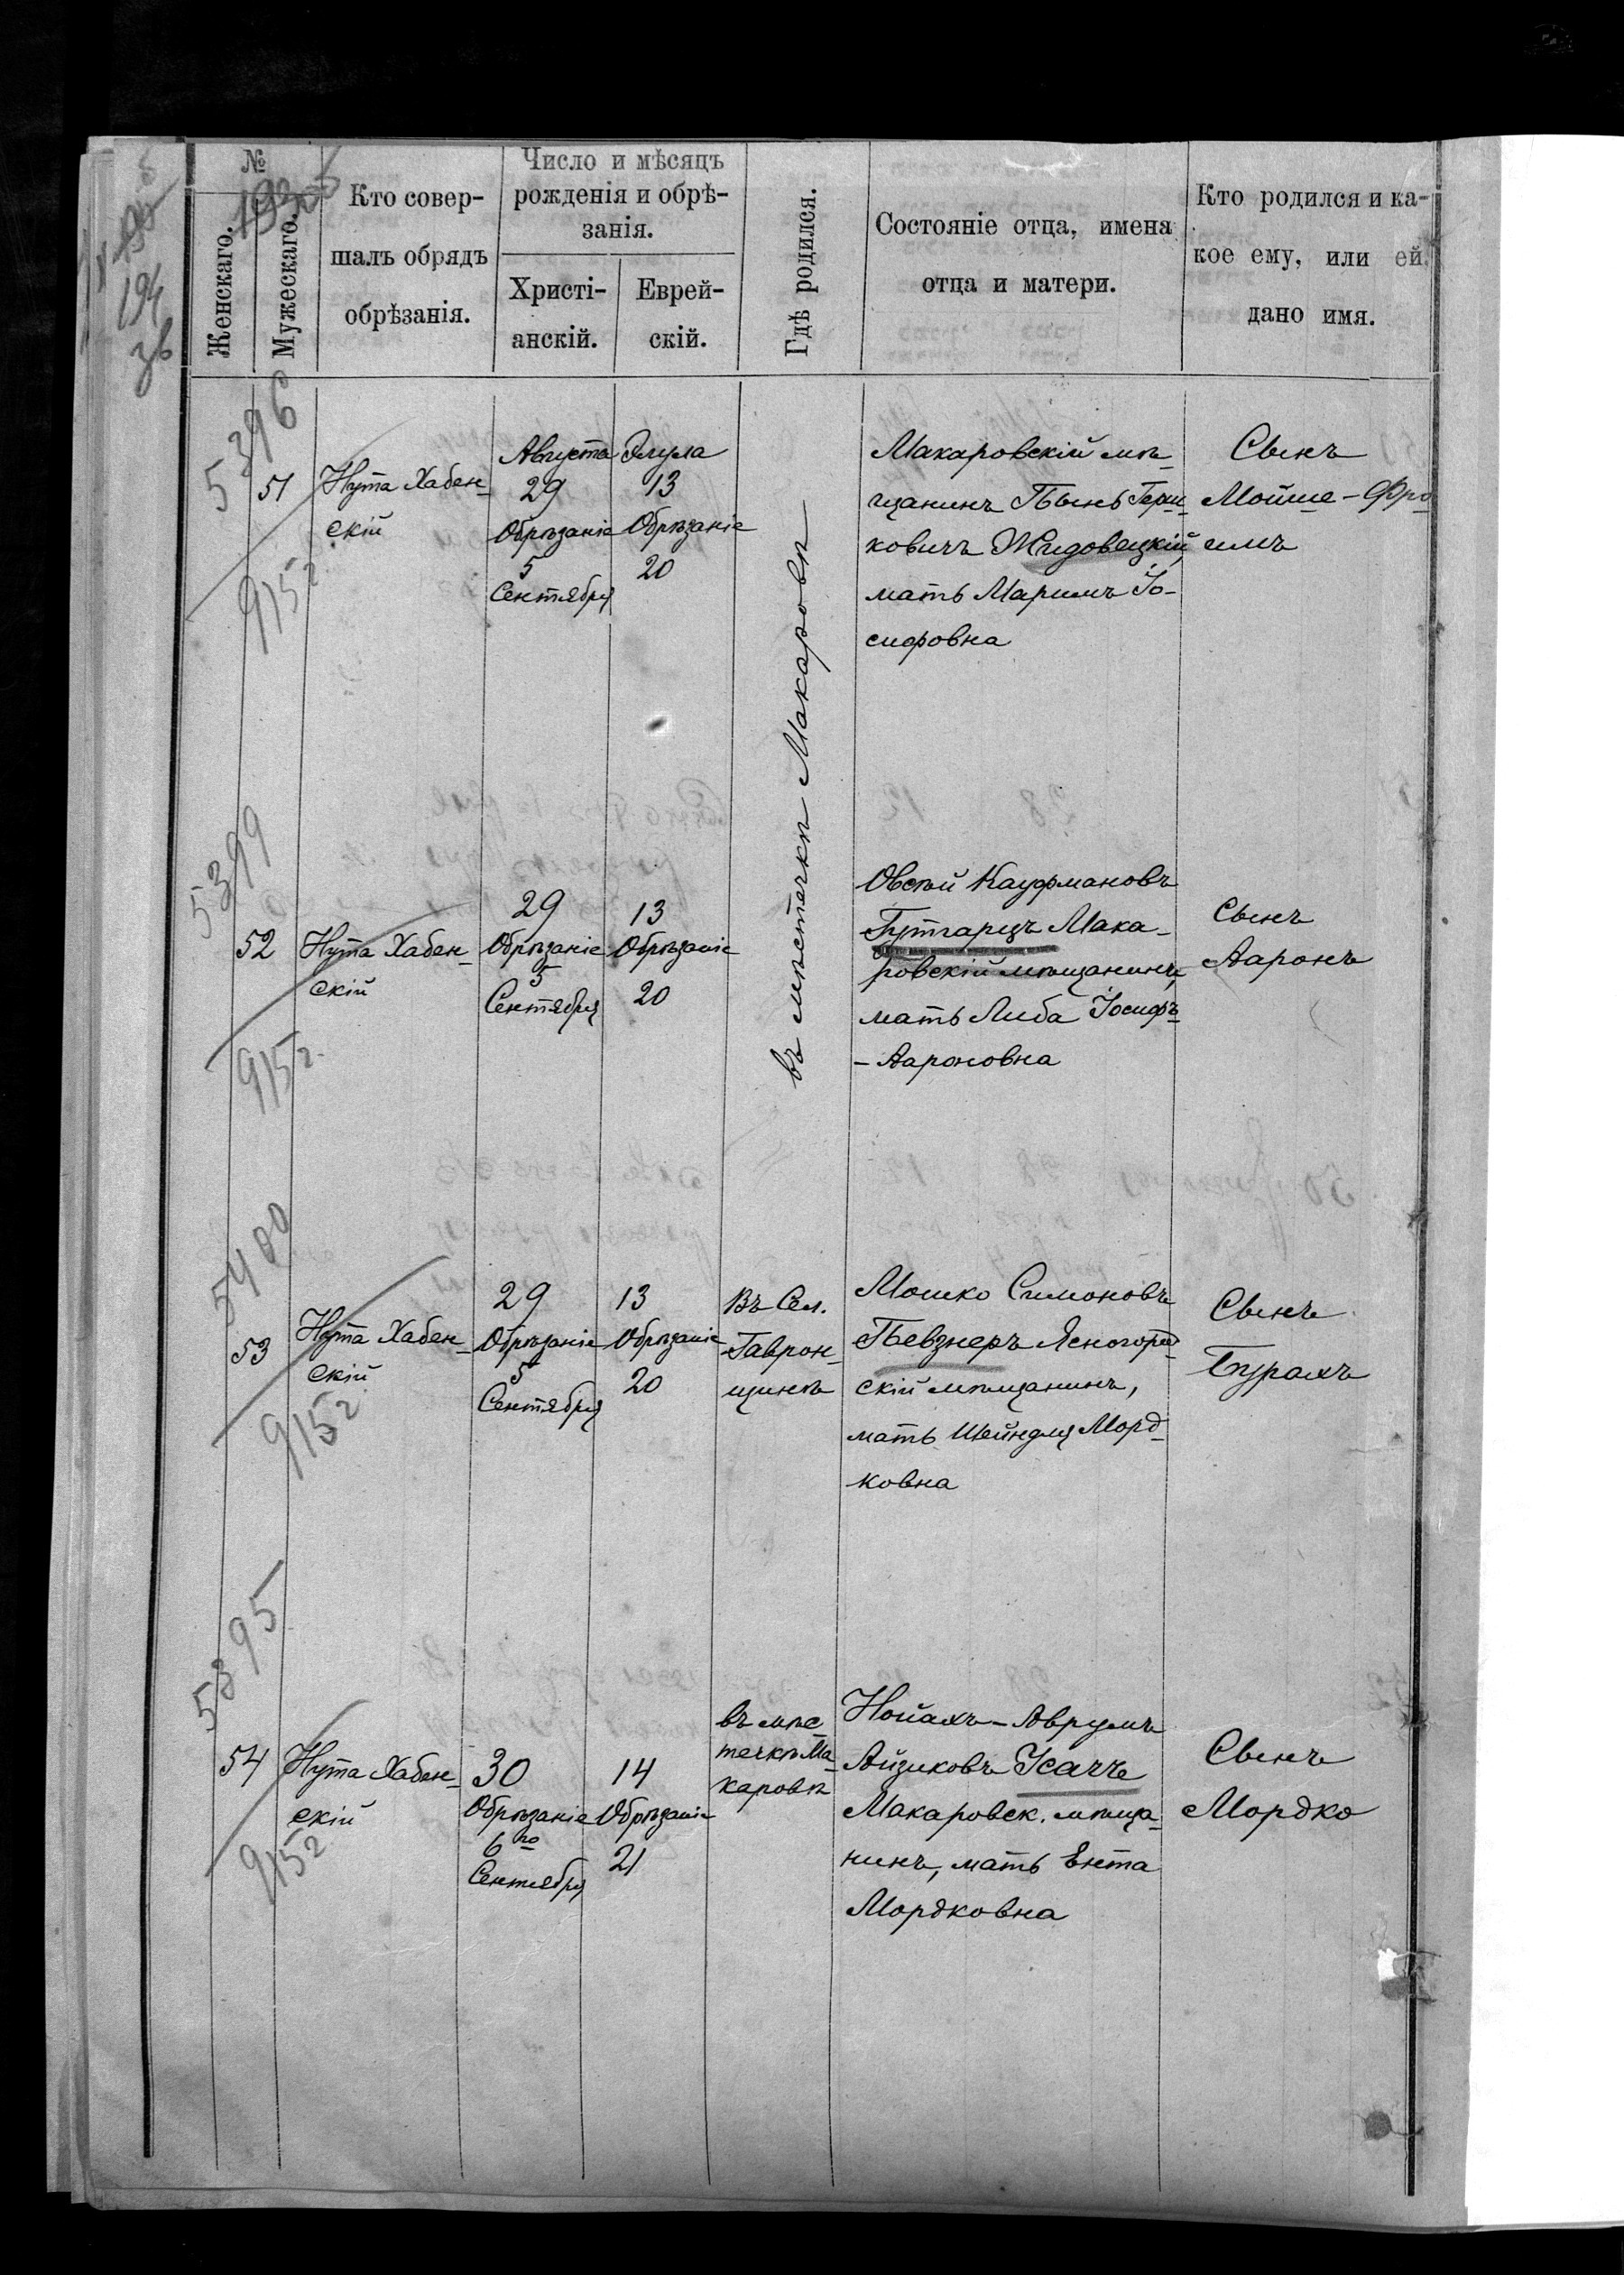 №
Женскаго.
Мужескаго.
Кто совер-
шалъ обрядъ
обрѣзанія.
Число и мѣсяцъ
рожденія и обрѣ-
занія.
Христі-
анскій.
Еврей-
скій.
Гдѣ родился.
Состояніе отца, имена
отца и матери.
Кто родился и ка-
кое ему, или ей
дано имя.
194
5396
51
Нута Хабен-
скій
9152
Августа
29
Обрѣзаніе
5
Сентября
Элула
13
Обрѣзаніе
20
въ мѣстечкѣ Макаровѣ
Макаровскій мѣ-
щанинъ
ковичъ Жидовецкій,
мать Маримъ Іо-
сифовна
Сынъ
Мойше-Фро-
имъ
5399
52
Нута Хабен-
скій
9152
29
Обрѣзаніе
5
Сентября
13
Обрѣзаніе
20
Овсѣй Кауфмановъ
Гутгарцъ Мака-
ровскій мѣщанинъ,
мать Либа Іосифъ-
-Аароновна
Сынъ
Ааронъ
5400
53
Нута Хабен-
скій
9152
29
Обрѣзаніе
5
Сентября
13
Обрѣзаніе
20
Въ Сел.
Гаврон-
щинѣ
Мошко Симоновъ
Певзнеръ Ясногород-
скій мѣщанинъ,
мать Шейндля Морд-
ковна
Сынъ
5395
54
Нута Хабен-
скій
9152
30
Обрѣзаніе
6го
Сентября
14
Обрѣзаніе
21
въ мѣс-
течкѣ Ма-
каровѣ
Нойахъ-Аврумъ
Айзиковъ Усачъ
Макаровск. мѣща-
нинъ, мать Ента
Мордковна
Сынъ
Мордко